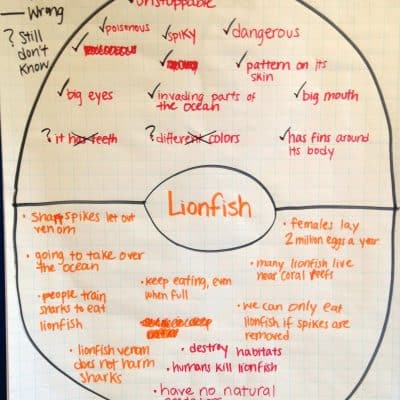 unstoppable
— Wrong
? Still
don't
know
✓poisonous
✓spiky
✓dangerous
✓pattern on its
skin
✓big eyes
✓invading parts of
the ocean
✓big mouth
? it has teeth
? different colors
✓has fins around
its body
Lionfish
• sharp spikes let out
venom
• going to take over
the ocean
• people train
sharks to eat
lionfish
• lionfish venom
does not harm
sharks
• keep eating, even
when full
• destroy habitats
• humans kill lionfish
• have no natural
• females lay
2 million eggs a year
• many lionfish live
near coral reefs
• we can only eat
lionfish if spikes are
removed